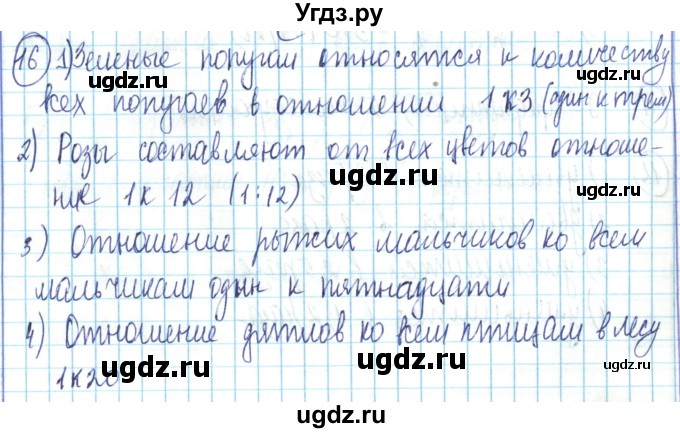 Угдз.ру
16 1) Зеленые попугаи относятся к количеству
ugdz.ru ugdz.ru ugdz.ru
всех попугаев в отношении 1 к 3 (один к трем)
ugdz.ru
2) Розы составляют от всех цветов отноше-
ugdz.ru ugdz.ru
ние 1 к 12 (1:12)
ugdz.ru
3) Отношение рыжих мальчиков ко всем
ugdz.ru ugdz.ru
мальчикам один к пятнадцати
ugdz.ru
4) Отношение дятлов ко всем птицам в лесу
ugdz.ru ugdz.ru
1 к 20
ugdz.ru
ugdz.ru